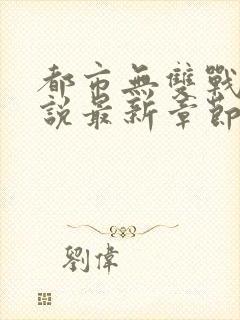 都市無雙戰
說最新章節
劉偉